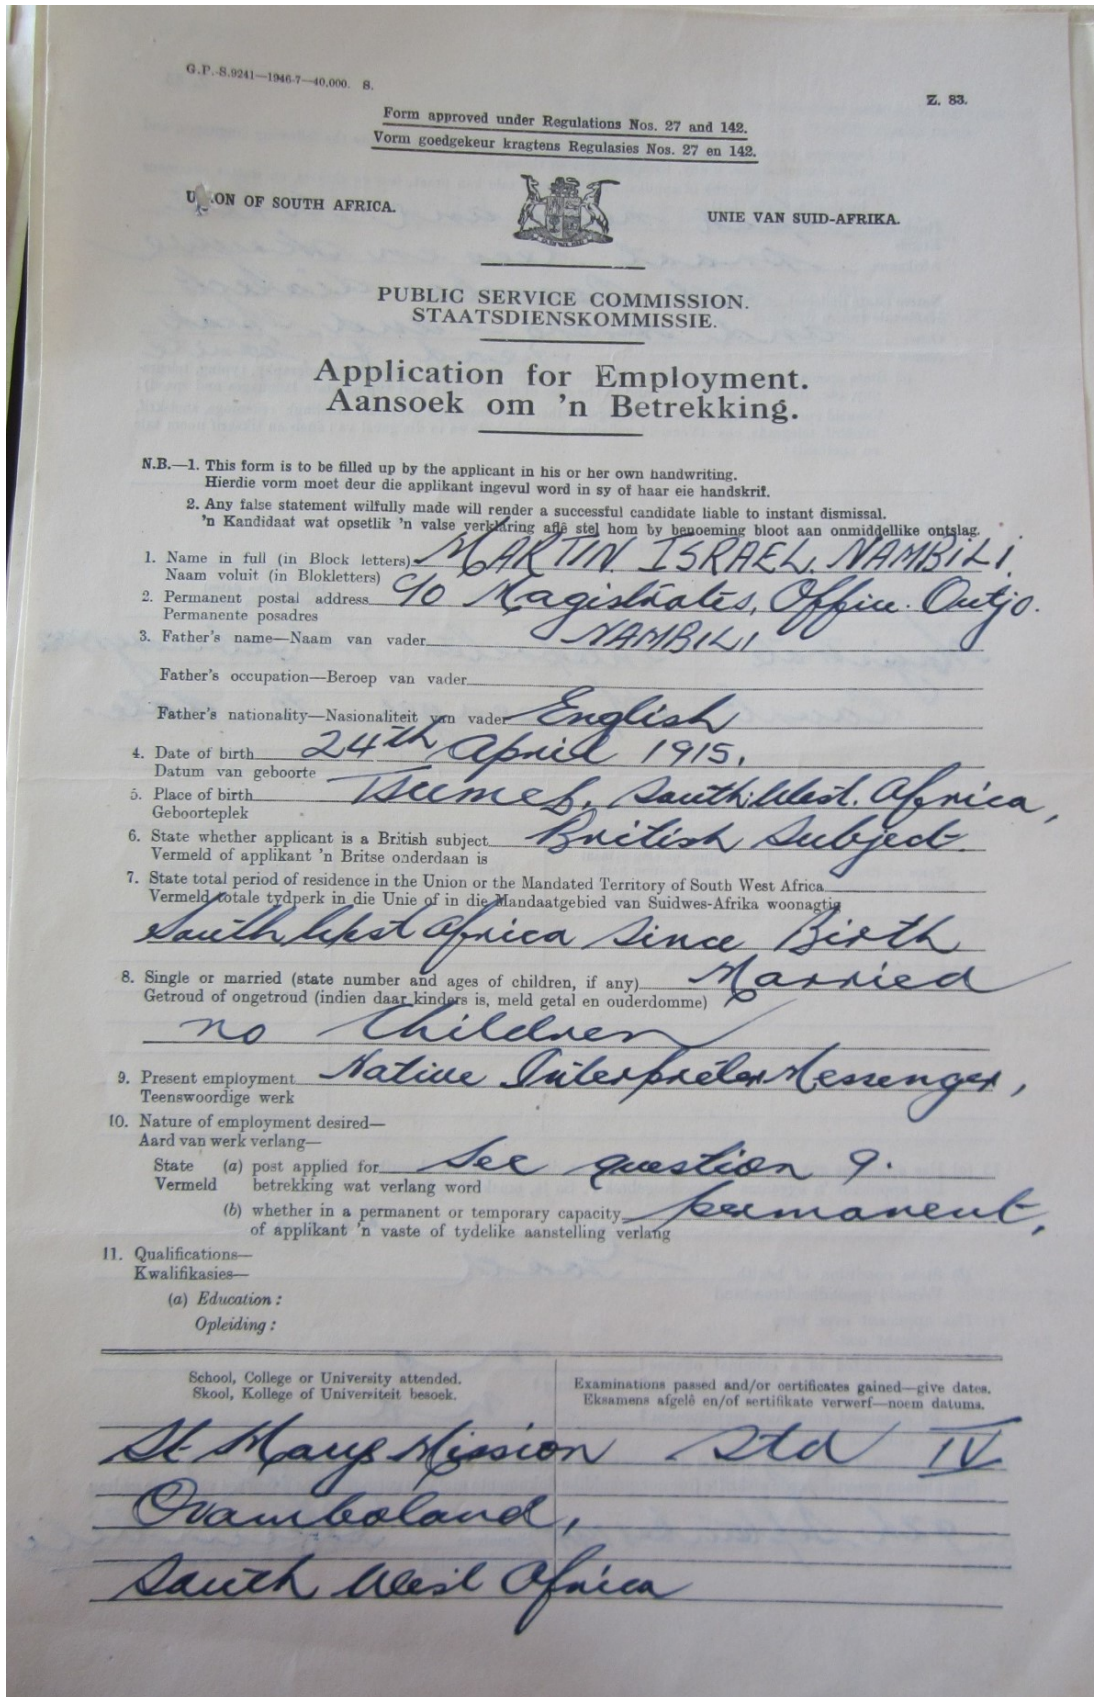 G.P.-S.9241—1946-7—40,000. S.
Z. 83.
Form approved under Regulations Nos. 27 and 142.
Vorm goedgekeur kragtens Regulasies Nos. 27 en 142.
UNION OF SOUTH AFRICA. UNIE VAN SUID-AFRIKA.
PUBLIC SERVICE COMMISSION.
STAATSDIENSKOMMISSIE.
Application for Employment.
Aansoek om 'n Betrekking.
N.B.—1. This form is to be filled up by the applicant in his or her own handwriting.
Hierdie vorm moet deur die applikant ingevul word in sy of haar eie handskrif.
2. Any false statement wilfully made will render a successful candidate liable to instant dismissal.
'n Kandidaat wat opsetlik 'n valse verklaring aflê stel hom by benoeming bloot aan onmiddellike ontslag.
1. Name in full (in Block letters) MARTIN ISRAEL. NAMBILI.
Naam voluit (in Blokletters)
2. Permanent postal address c/o Magistrates, Office. Outjo.
Permanente posadres
3. Father's name—Naam van vader NAMBILI
Father's occupation—Beroep van vader
Father's nationality—Nasionaliteit van vader English
4. Date of birth 24th April 1915.
Datum van geboorte
5. Place of birth Tsumeb. South. West. Africa,
Geboorteplek
6. State whether applicant is a British subject British Subject.
Vermeld of applikant 'n Britse onderdaan is
7. State total period of residence in the Union or the Mandated Territory of South West Africa
Vermeld totale tydperk in die Unie of in die Mandaatgebied van Suidwes-Afrika woonagtig
South West Africa Since Birth
8. Single or married (state number and ages of children, if any) Married
Getroud of ongetroud (indien daar kinders is, meld getal en ouderdomme)
no Children
9. Present employment Native Interpreter Messenger,
Teenswoordige werk
10. Nature of employment desired—
Aard van werk verlang—
State (a) post applied for See question 9.
Vermeld betrekking wat verlang word
(b) whether in a permanent or temporary capacity permanent,
of applikant 'n vaste of tydelike aanstelling verlang
11. Qualifications—
Kwalifikasies—
(a) Education:
Opleiding:
School, College or University attended. Examinations passed and/or certificates gained—give dates.
Skool, Kollege of Universiteit besoek. Eksamens afgelê en/of sertifikate verwerf—noem datums.
St Marys Mission Std IV
Ovamboland,
South West Africa